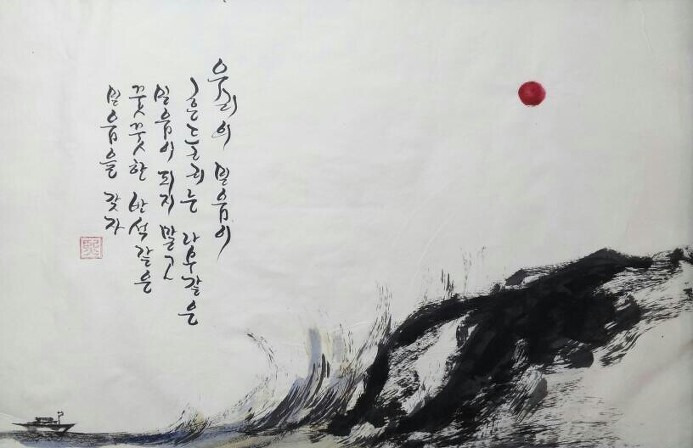 우리의 믿음이
흔드리는 나무같은
믿음이 피지 말고
꿋꿋한 반석같은
믿음을 갖자